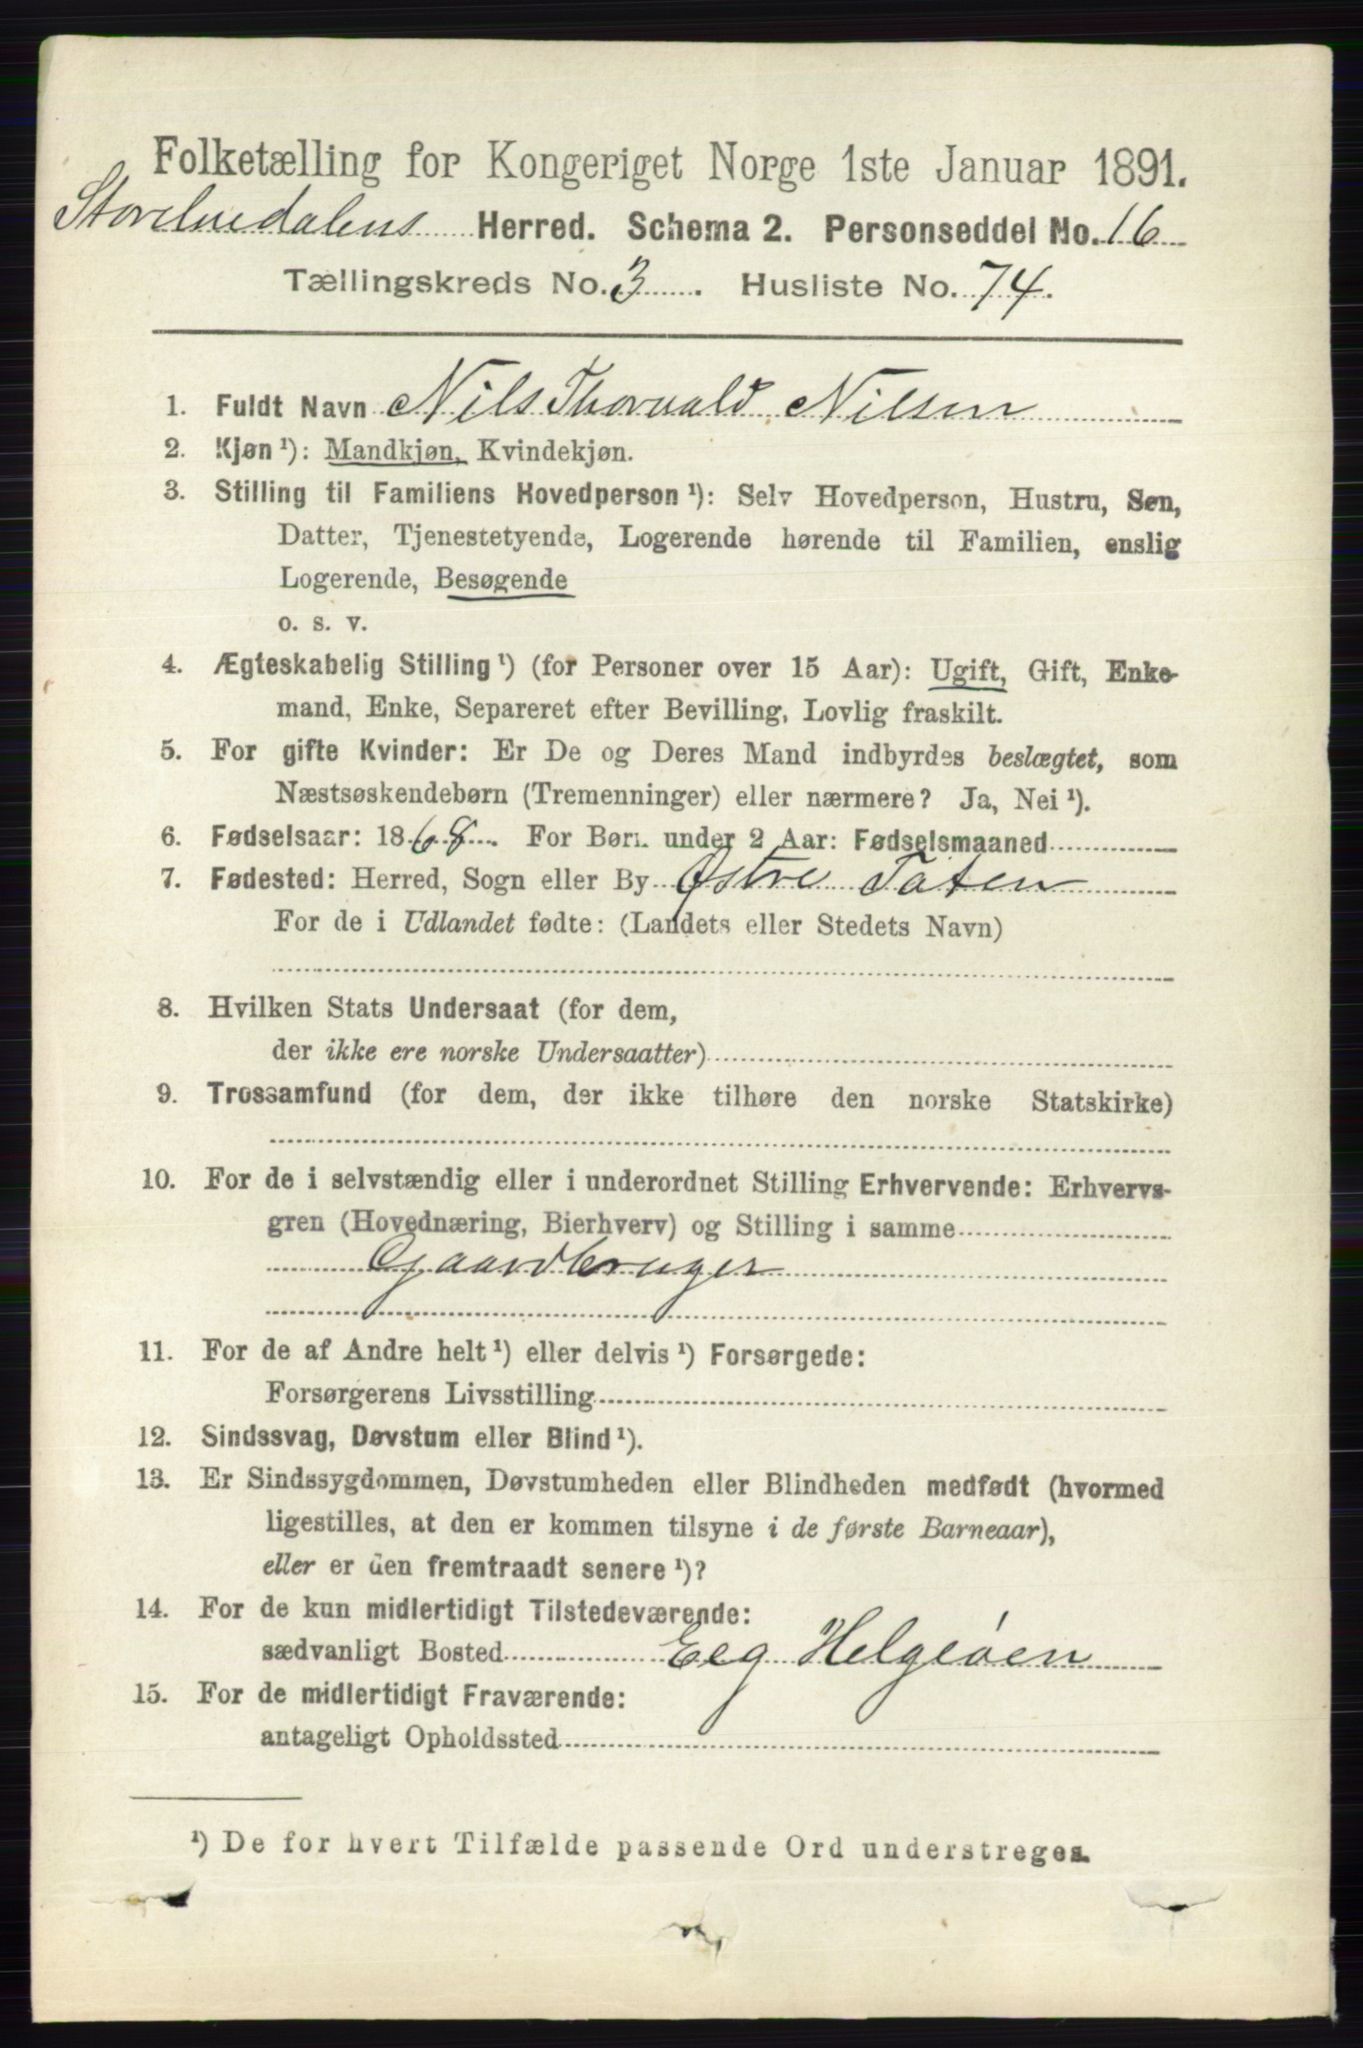 Folketælling for Kongeriget Norge 1ste Januar 1891.
Storelvedalens Herred. Schema 2. Personseddel No. 16
Tællingskreds No. 3. Husliste No. 74.
1. Fuldt Navn Nils Thorvald Nilsen
2. Kjøn ¹): Mandkjøn, Kvindekjøn.
3. Stilling til Familiens Hovedperson ¹): Selv Hovedperson, Hustru, Søn,
Datter, Tjenestetyende, Logerende hørende til Familien, enslig
Logerende, Besøgende
o. s. v.
4. Ægteskabelig Stilling ¹) (for Personer over 15 Aar): Ugift, Gift, Enke-
mand, Enke, Separeret efter Bevilling, Lovlig fraskilt.
5. For gifte Kvinder: Er De og Deres Mand indbyrdes beslægtet, som
Næstsøskendebørn (Tremenninger) eller nærmere? Ja, Nei ¹).
6. Fødselsaar: 1868. For Børn under 2 Aar: Fødselsmaaned
7. Fødested: Herred, Sogn eller By Østre Toten
For de i Udlandet fødte: (Landets eller Stedets Navn)
8. Hvilken Stats Undersaat (for dem,
der ikke ere norske Undersaatter)
9. Trossamfund (for dem, der ikke tilhøre den norske Statskirke)
10. For de i selvstændig eller i underordnet Stilling Erhvervende: Erhvervs-
gren (Hovednæring, Bierhverv) og Stilling i samme
Gaardbruger
11. For de af Andre helt ¹) eller delvis ¹) Forsørgede:
Forsørgerens Livsstilling
12. Sindssvag, Døvstum eller Blind ¹).
13. Er Sindssygdommen, Døvstumheden eller Blindheden medfødt (hvormed
ligestilles, at den er kommen tilsyne i de første Barneaar),
eller er den fremtraadt senere ¹)?
14. For de kun midlertidigt Tilstedeværende:
sædvanligt Bosted Eeg Helgeøen
15. For de midlertidigt Fraværende:
antageligt Opholdssted
¹) De for hvert Tilfælde passende Ord understreges.